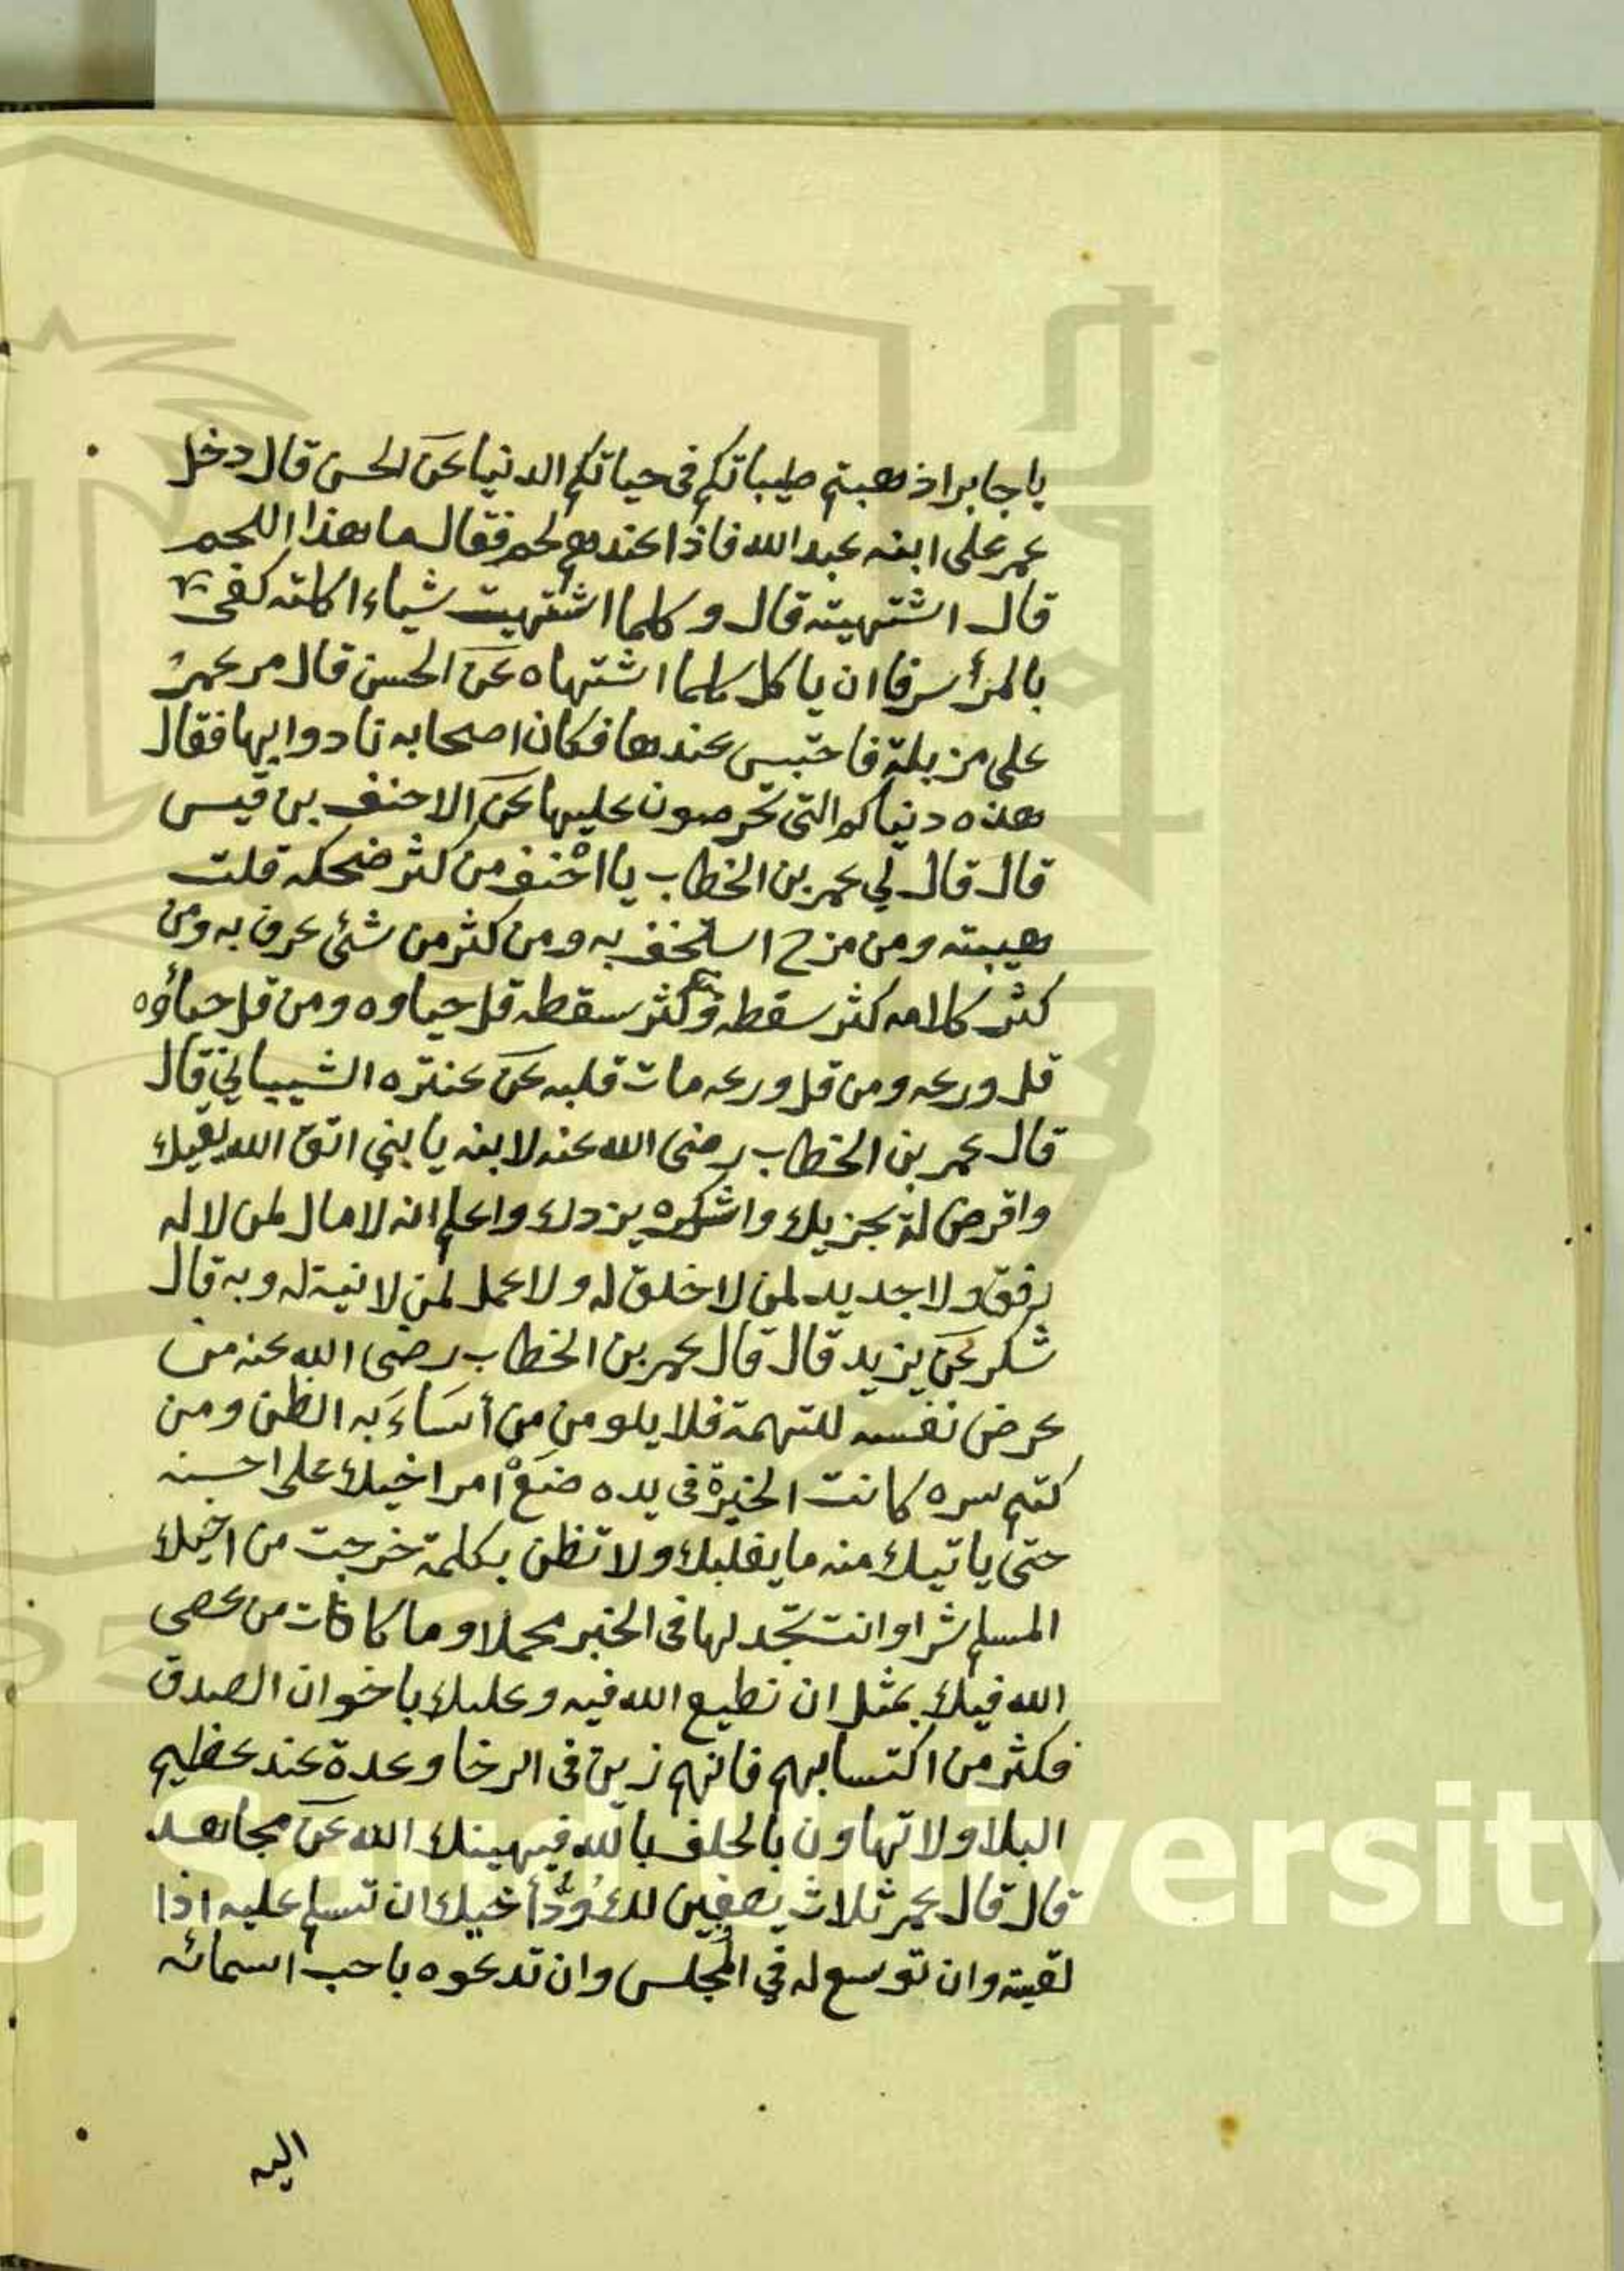 يا جابر اذهبتم طيباتكم فى حياتكم الدنيا عن الحسن قال دخل
عمر على ابنه عبد الله فاذا عندهم لحم فقال ما هذا اللحم
قال اشتهيته قال وكلما اشتهيت شياء اكلته كفى
بالمرأ سرفا ان ياكل كلما اشتهاه عن الحسن قال مر عمر
على مزبلة فاحتبس عندها فكان اصحابه تادوا بها فقال
هذه دنياكم التى تحرصون عليها عن الاحنف بن قيس
قال قال لي عمر بن الخطاب يا احنف من كثر ضحكه قلت
هيبته ومن مزح استخف به ومن كثر من شئ عرف به ومن
كثر كلامه كثر سقطه ومن كثر سقطه قل حياوه ومن قل حياؤه
قل ورعه ومن قل ورعه مات قلبه عن عنتره الشيباني قال
قال عمر بن الخطاب رضى الله عنه لابنه يا بني اتق الله يقيك
واقرض لله يجزيك واشكره يزدك واعلم انه لا مال لمن لا له
رفق ولا جديد لمن لا خلق له ولا عمل لمن لا نية له وبه قال
شكر عن يزيد قال قال عمر بن الخطاب رضى الله عنه من
عرض نفسه للتهمة فلا يلومن من أساء به الظن ومن
كتم سره كانت الخيرة فى يده ضع امر اخيك على احسنه
حتى ياتيك منه ما يغلبك ولا تظن بكلمة خرجت من اخيك
المسلم شرا وانت تجد لها فى الخير محملا وما كافات من عصى
الله فيك بمثل ان تطيع الله فيه وعليك باخوان الصدق
فكثر من اكتسابهم فانهم زين فى الرخا وعدة عند عظيم
البلا ولا تهاون بالحلف بالله فيهينك الله عن مجاهد
قال قال عمر ثلاث يصفين لك وُدّ أخيك ان تسلم عليه اذا
لقيته وان توسع له في المجلس وان تدعوه باحب اسمائه
اليه
g Saud University